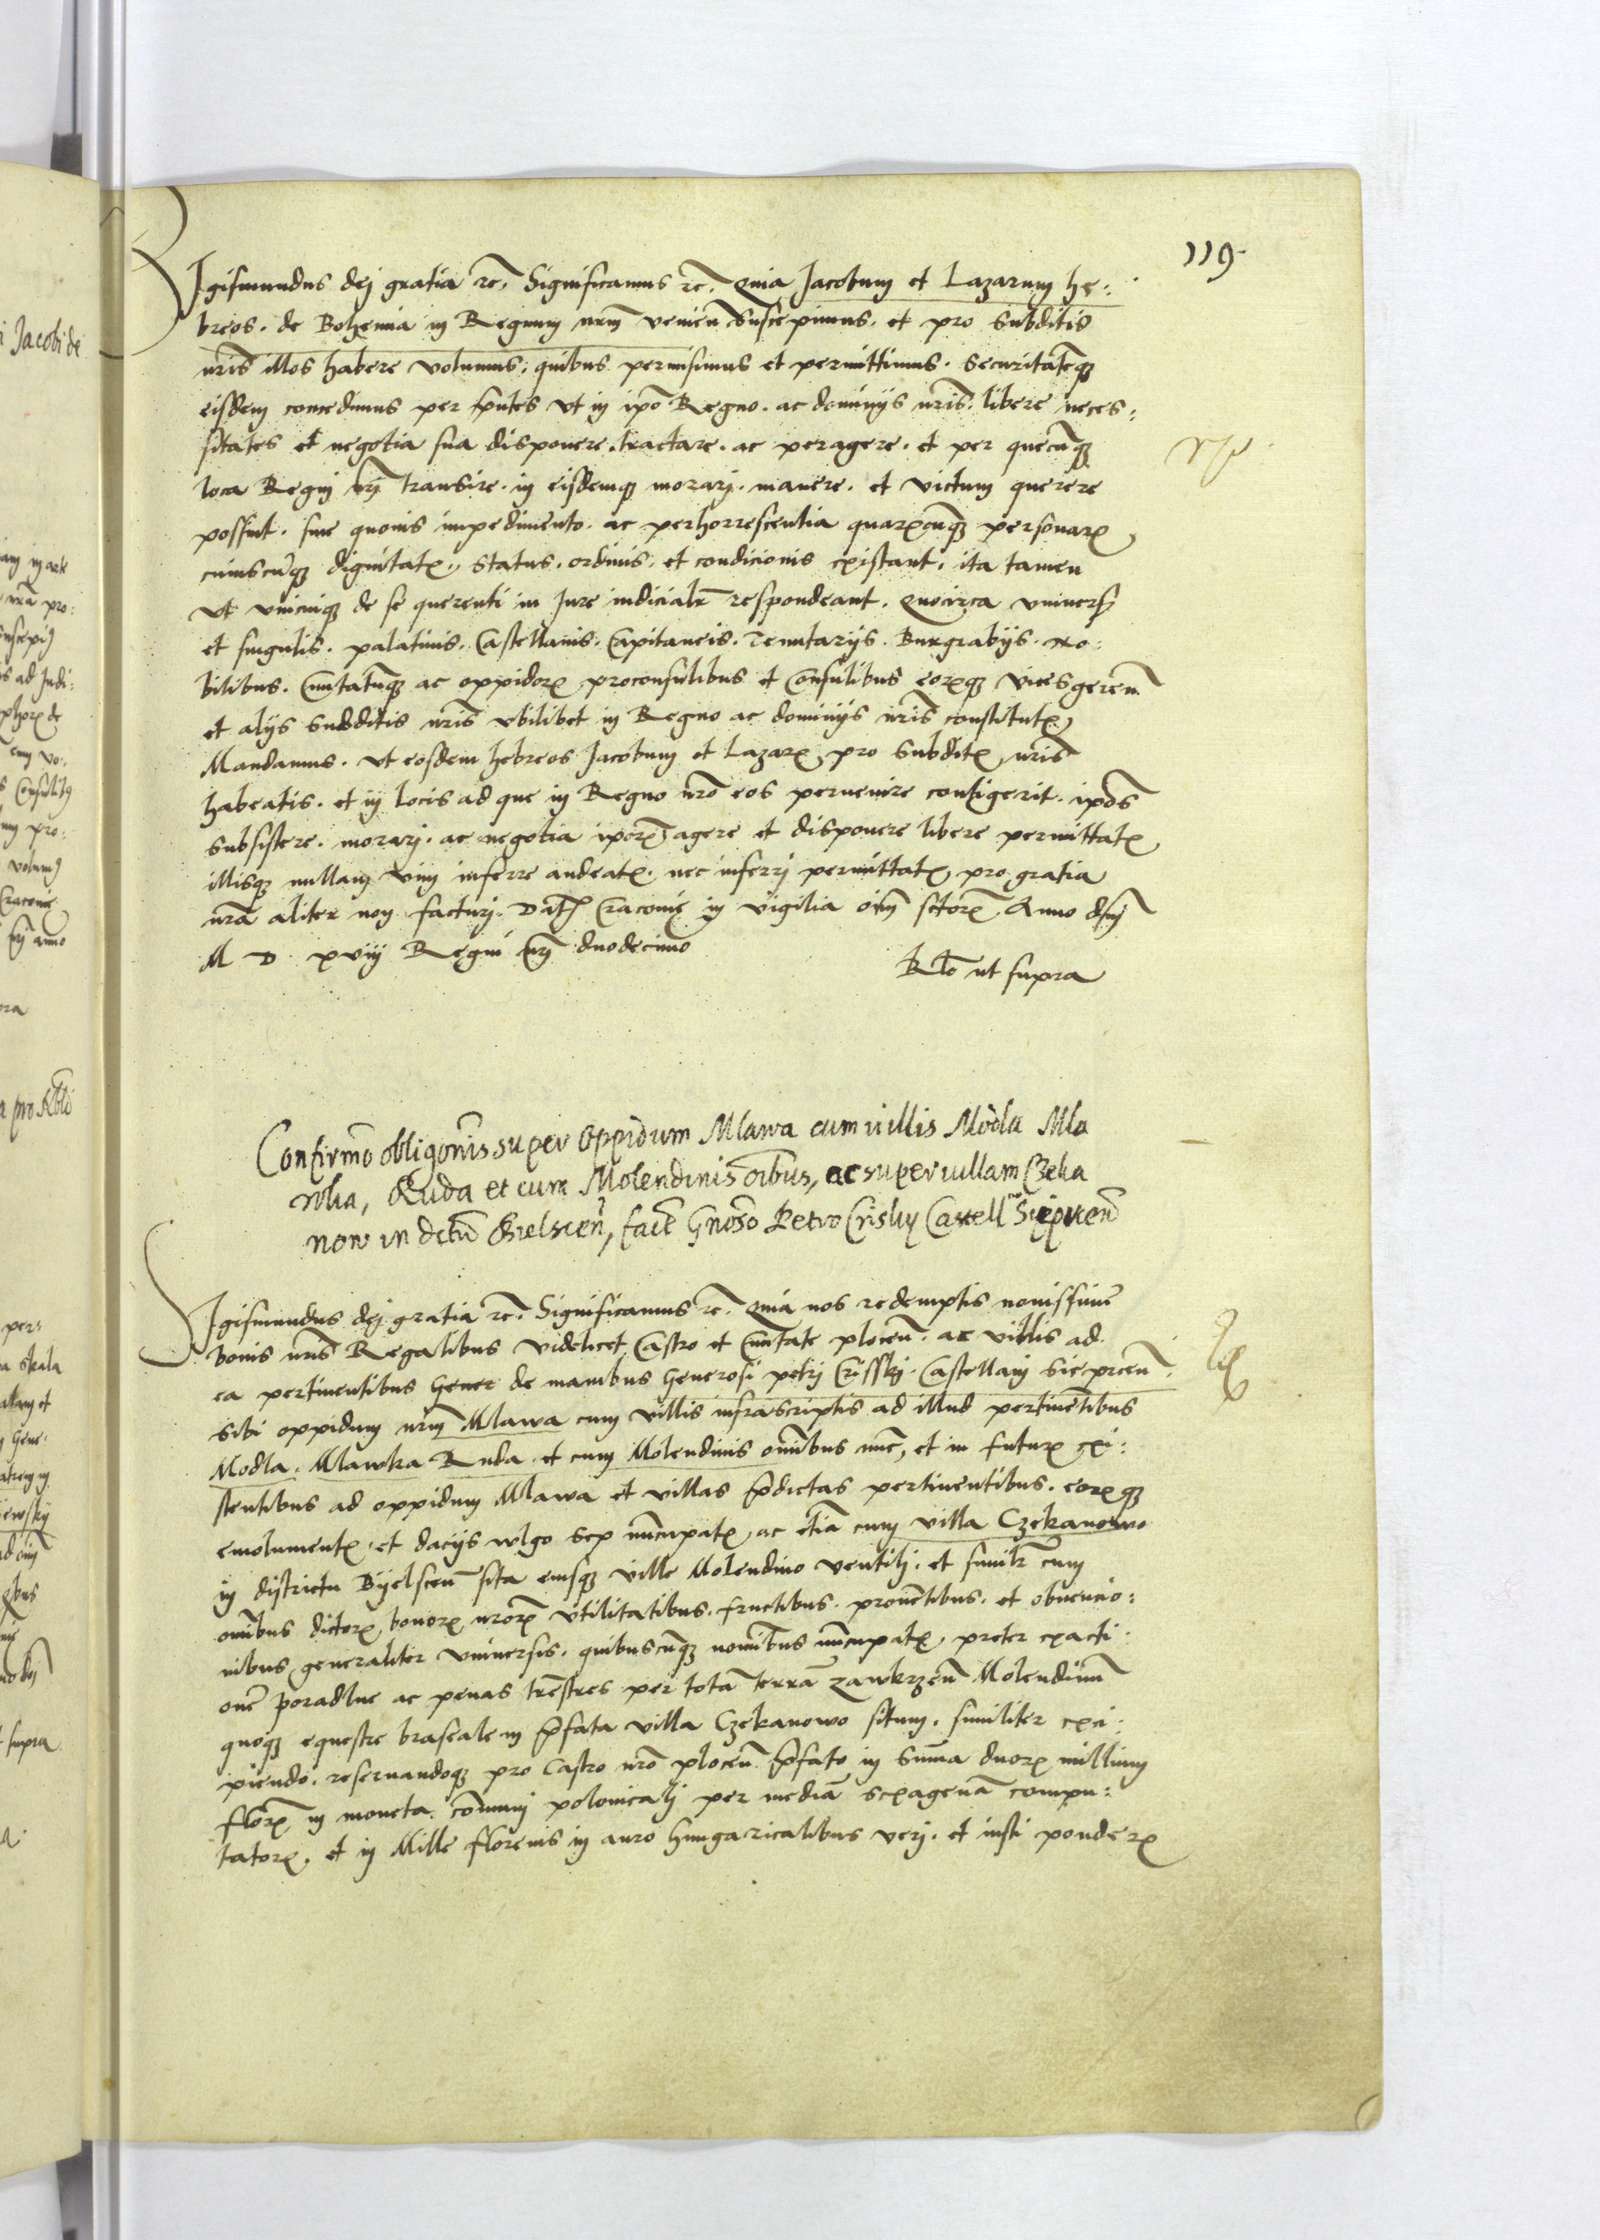 119.
Sigismundus dej gratia rc. Significamus rc. Quia Jacobum et Lazarum he:
breos. de Bohemia in Regnum nrm venien Suscepimus. et pro subditis
nris illos habere volumus, quibus permisimus et permittimus. securitatẽqȝ
eisdem concedimus per pntes vt in ipo Regno. ac dominijs nris. libere neces:
sitates et negotia sua disponere. tractare. ac peragere. et per quecũqȝ
loca Regni nrj transire. in eisdemqȝ morarj. manere. et victum querere
possint. sine quouis impedimento. ac perhorrescentia quarũcũqȝ personarꝝ
cuiuscũqȝ dignitatꝭ, status. ordinis. et condicionis existant. ita tamen
vt vnicuiqȝ de se querenti in Jure iudicialr respondeant. Quocirca vniversꝭ
et singulis. palatinis. Castellanis. Capitaneis. Tenutarijs. Burgrabijs. No:
bilibus. Ciuitatũqȝ ac oppidorꝝ proconsulibus et Consulibus eorꝝqȝ vicesgeren
et alijs subditis nris vbilibet in Regno ac dominijs nris constitutꝭ
Mandamus. vt eosdem hebreos Jacobum et Lazarꝝ pro subditꝭ nris
habeatis. et in locis ad que in Regno nro eos peruenire contigerit. ipos
subsistere. morarj. ac negotia iporꝝ agere et disponere libere permittatꝭ
illisqȝ nullam vim inferre audeatꝭ. nec inferrj permittatꝭ pro gratia
nra aliter non facturj. Datꝭ Cracovie in vigilia oim sctorꝝ Anno dnj
M D xviij Regni nrj duodecimo
Rlo ut supra
Confirmo obligonis super Oppidum Mlawa cum villis Modla Mla
wka, Ruda et cum Molendinis oibus, ac super villam Czeka
now in dctu Bielscen, fact Gnoso Petro Crisky Castellno Sieprcen
Sigismundus dej gratia rc. Significamus rc. Quia nos redemptis nouissime
bonis nris Regalibus videlicet Castro et Ciuitate plocen. ac villis ad
ea pertinentibus Gener de manibus Generosi petrj Crisskj Castellanj Sieprcen.
sibi oppidum nrm Mlawa cum villis infrascriptis ad illud pertinentibus
Modla. Mlawka Ruda. et cum Molendinis omibus nunc, et in futurꝝ exi:
stentibus ad oppidum Mlawa et villas pdictas pertinentibus. eorꝝqȝ
emolumentꝭ. et dacijs wlgo sep nuncupatꝭ, ac etia cum villa Czekanowo
in districtu Byelscen sita eiusqȝ ville Molendino ventili. et similr cum
omibus dictorꝝ bonorꝝ nrorꝝ vtilitatibus. fructibus. prouentibus. et obuencio:
nibus generaliter vniuersis. quibuscũqȝ nominibus nuncupatꝭ, preter exacti
one poradlne ac penas trestres per tota terra Zawkrzen Molendinũ
quoqȝ equestre braseale in pfata villa Czekanowo situm. similiter exci:
piendo. reseruandoqȝ pro Castro nro plocen pfato in suma duorꝝ millium
florꝝ in moneta comunj polonicalj per media sexagena compu:
tatorꝝ. et in Mille florenis in auro hungaricalibus verj. et iusti ponderꝭ